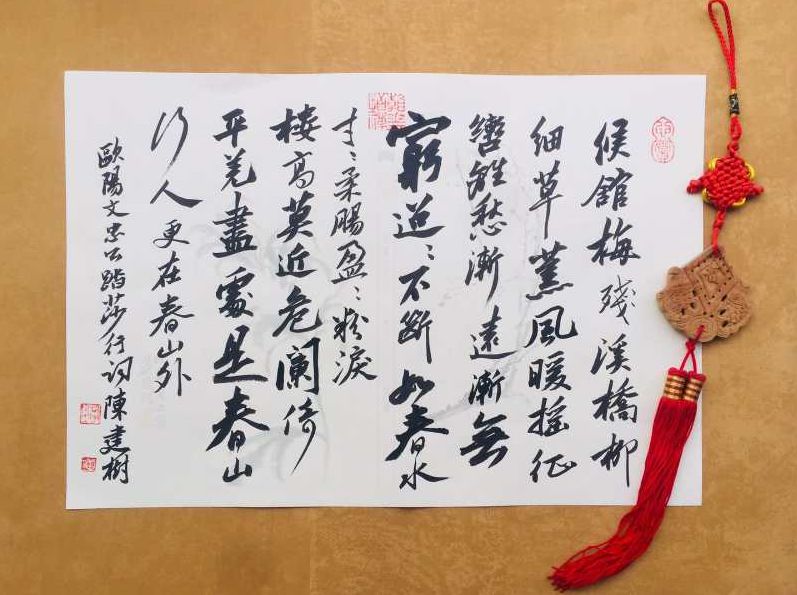 候館梅殘溪橋柳
細草薰風暖搖征
轡離愁漸遠漸無
窮迢〻不斷如春水
寸〻柔腸盈〻粉淚
樓高莫近危闌倚
平蕪盡處是春山
行人更在春山外
歐陽文忠公踏莎行詞陳建樹